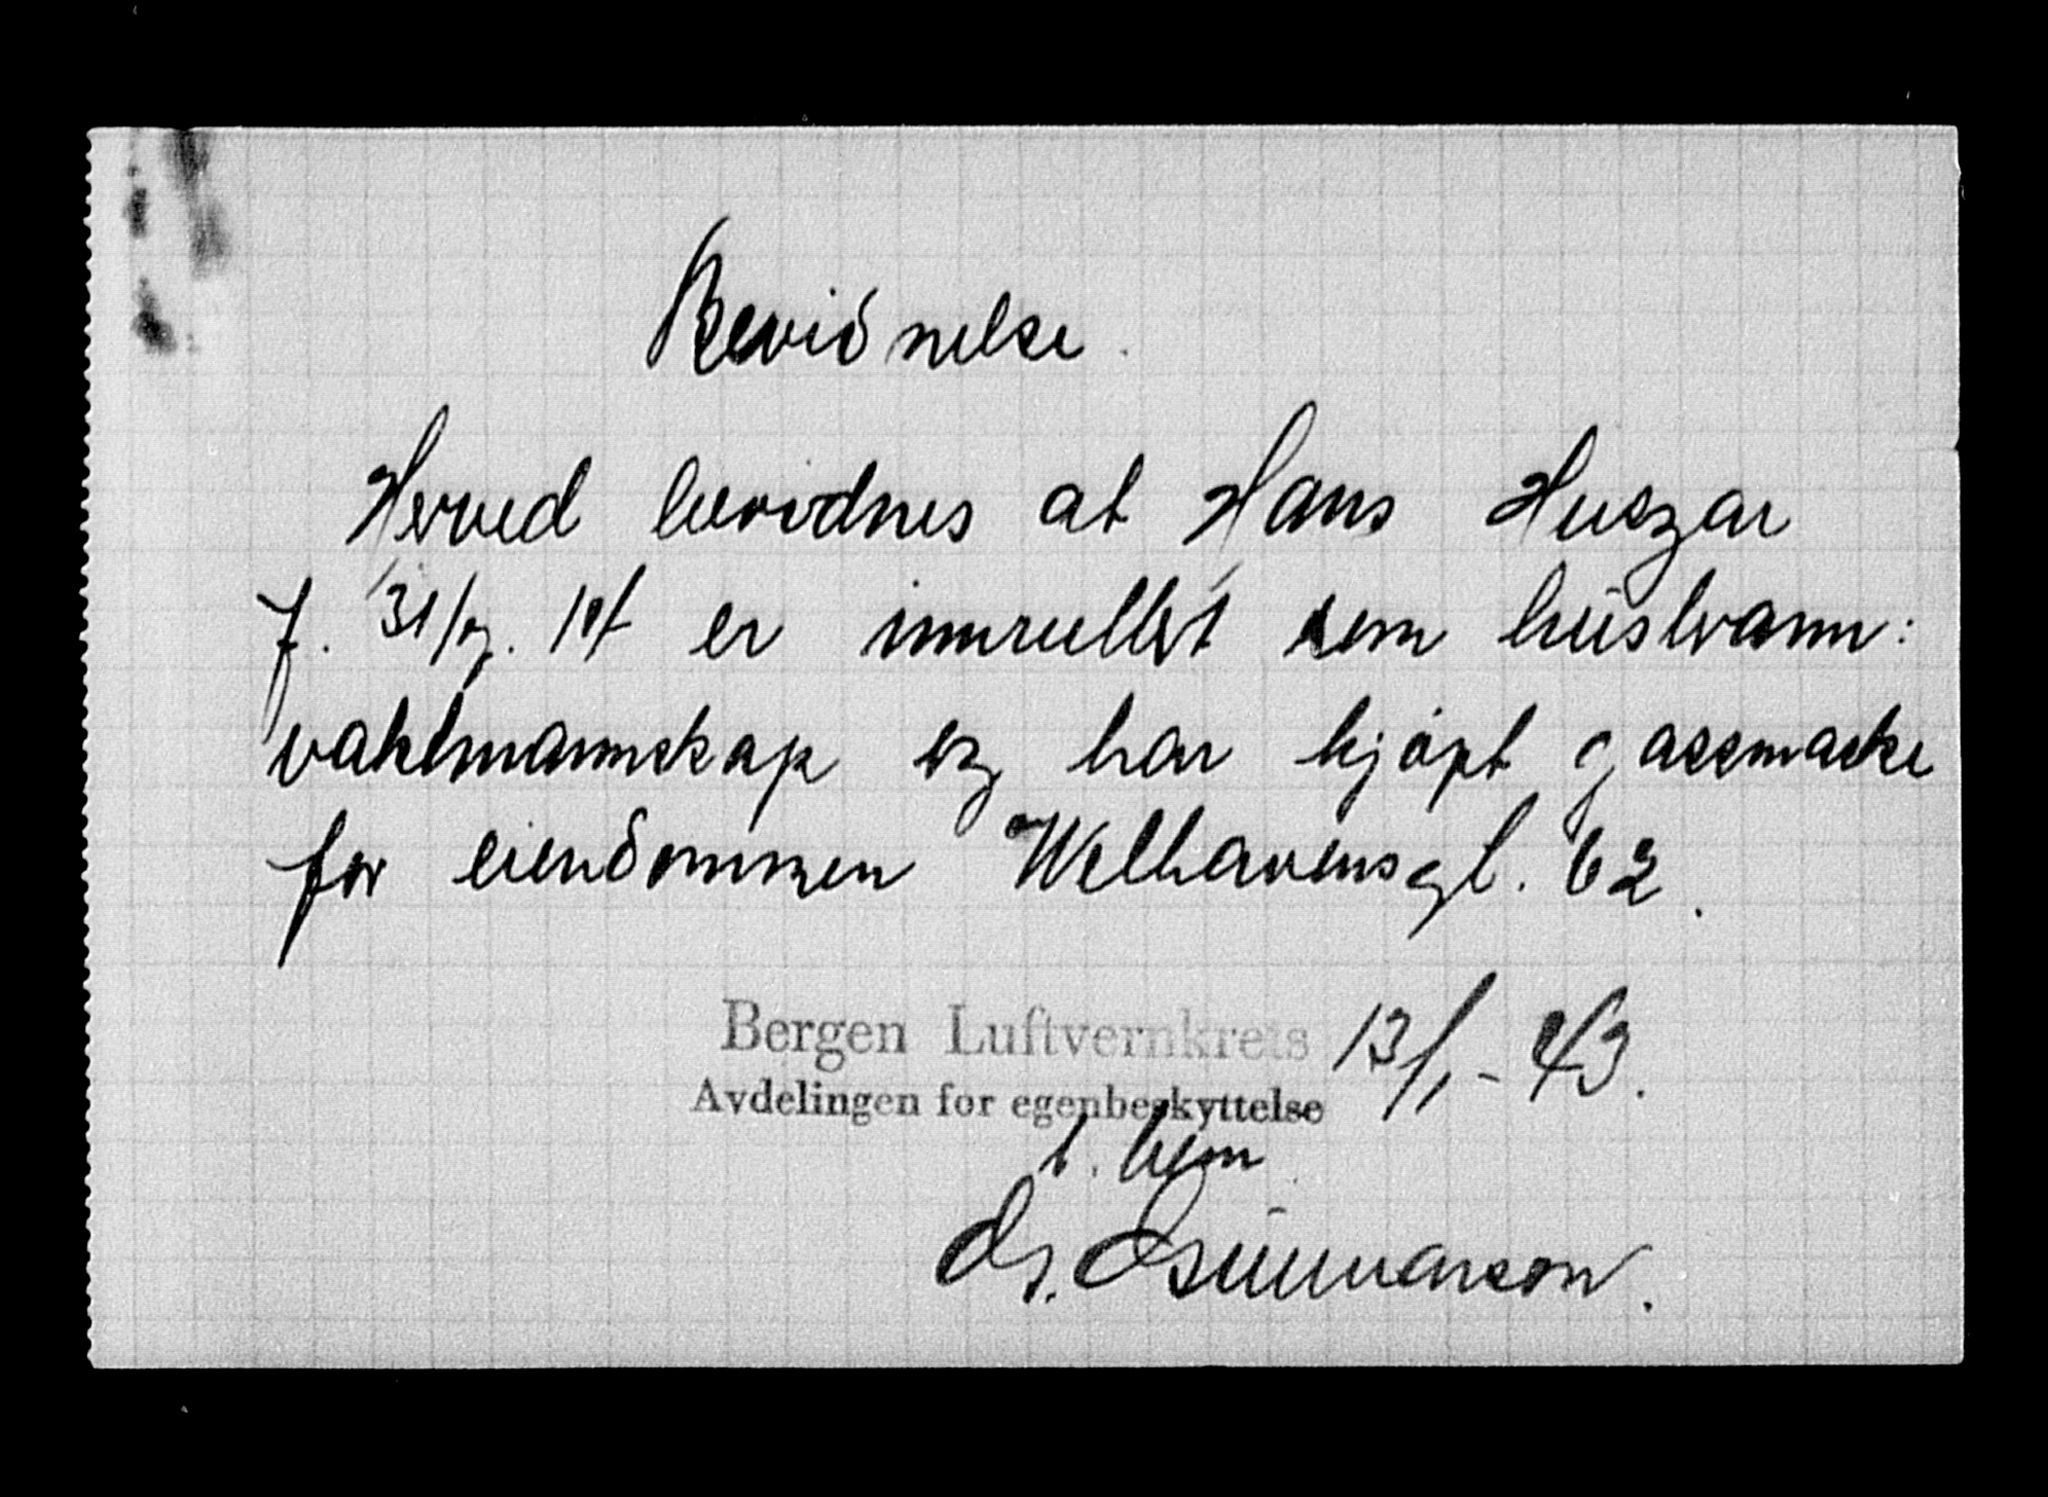 Bevidnelse.
Herved bevidnes at Hans Huszar
f. 31/ er innrullert som husbrann:
vaktmannskap og har kjøpt gassmaske
for eiendommen Welhavensgt. 62.
Bergen Luftvernkreis 13/1-43.
Avdelingen for egenbeskyttelse
Gunnarson.